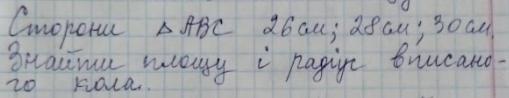 Сторони △ABC 26см; 28см; 30см.
Знайти площу і радіус вписано-
го кола.